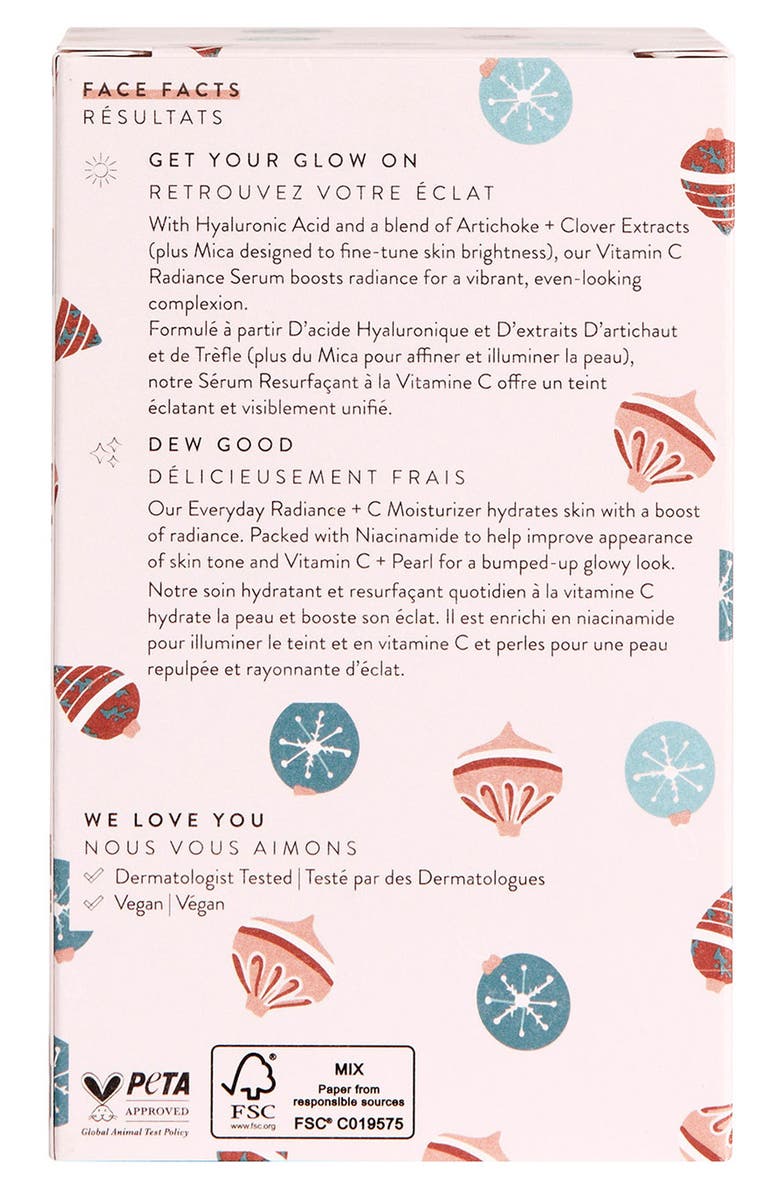 FACE FACTS
RÉSULTATS
GET YOUR GLOW ON
RETROUVEZ VOTRE ÉCLAT
With Hyaluronic Acid and a blend of Artichoke + Clover Extracts
(plus Mica designed to fine-tune skin brightness), our Vitamin C
Radiance Serum boosts radiance for a vibrant, even-looking
complexion.
Formulé à partir D'acide Hyaluronique et D'extraits D'artichaut
et de Trèfle (plus du Mica pour affiner et illuminer la peau),
notre Sérum Resurfaçant à la Vitamine C offre un teint
éclatant et visiblement unifié.
DEW GOOD
DÉLICIEUSEMENT FRAIS
Our Everyday Radiance + C Moisturizer hydrates skin with a boost
of radiance. Packed with Niacinamide to help improve appearance
of skin tone and Vitamin C + Pearl for a bumped-up glowy look.
Notre soin hydratant et resurfaçant quotidien à la vitamine C
hydrate la peau et booste son éclat. Il est enrichi en niacinamide
pour illuminer le teint et en vitamine C et perles pour une peau
repulpée et rayonnante d'éclat.
WE LOVE YOU
NOUS VOUS AIMONS
Dermatologist Tested | Testé par des Dermatologues
Vegan | Végan
PETA
APPROVED
Global Animal Test Policy
FSC®
www.fsc.org
MIX
Paper from
responsible sources
FSC® C019575